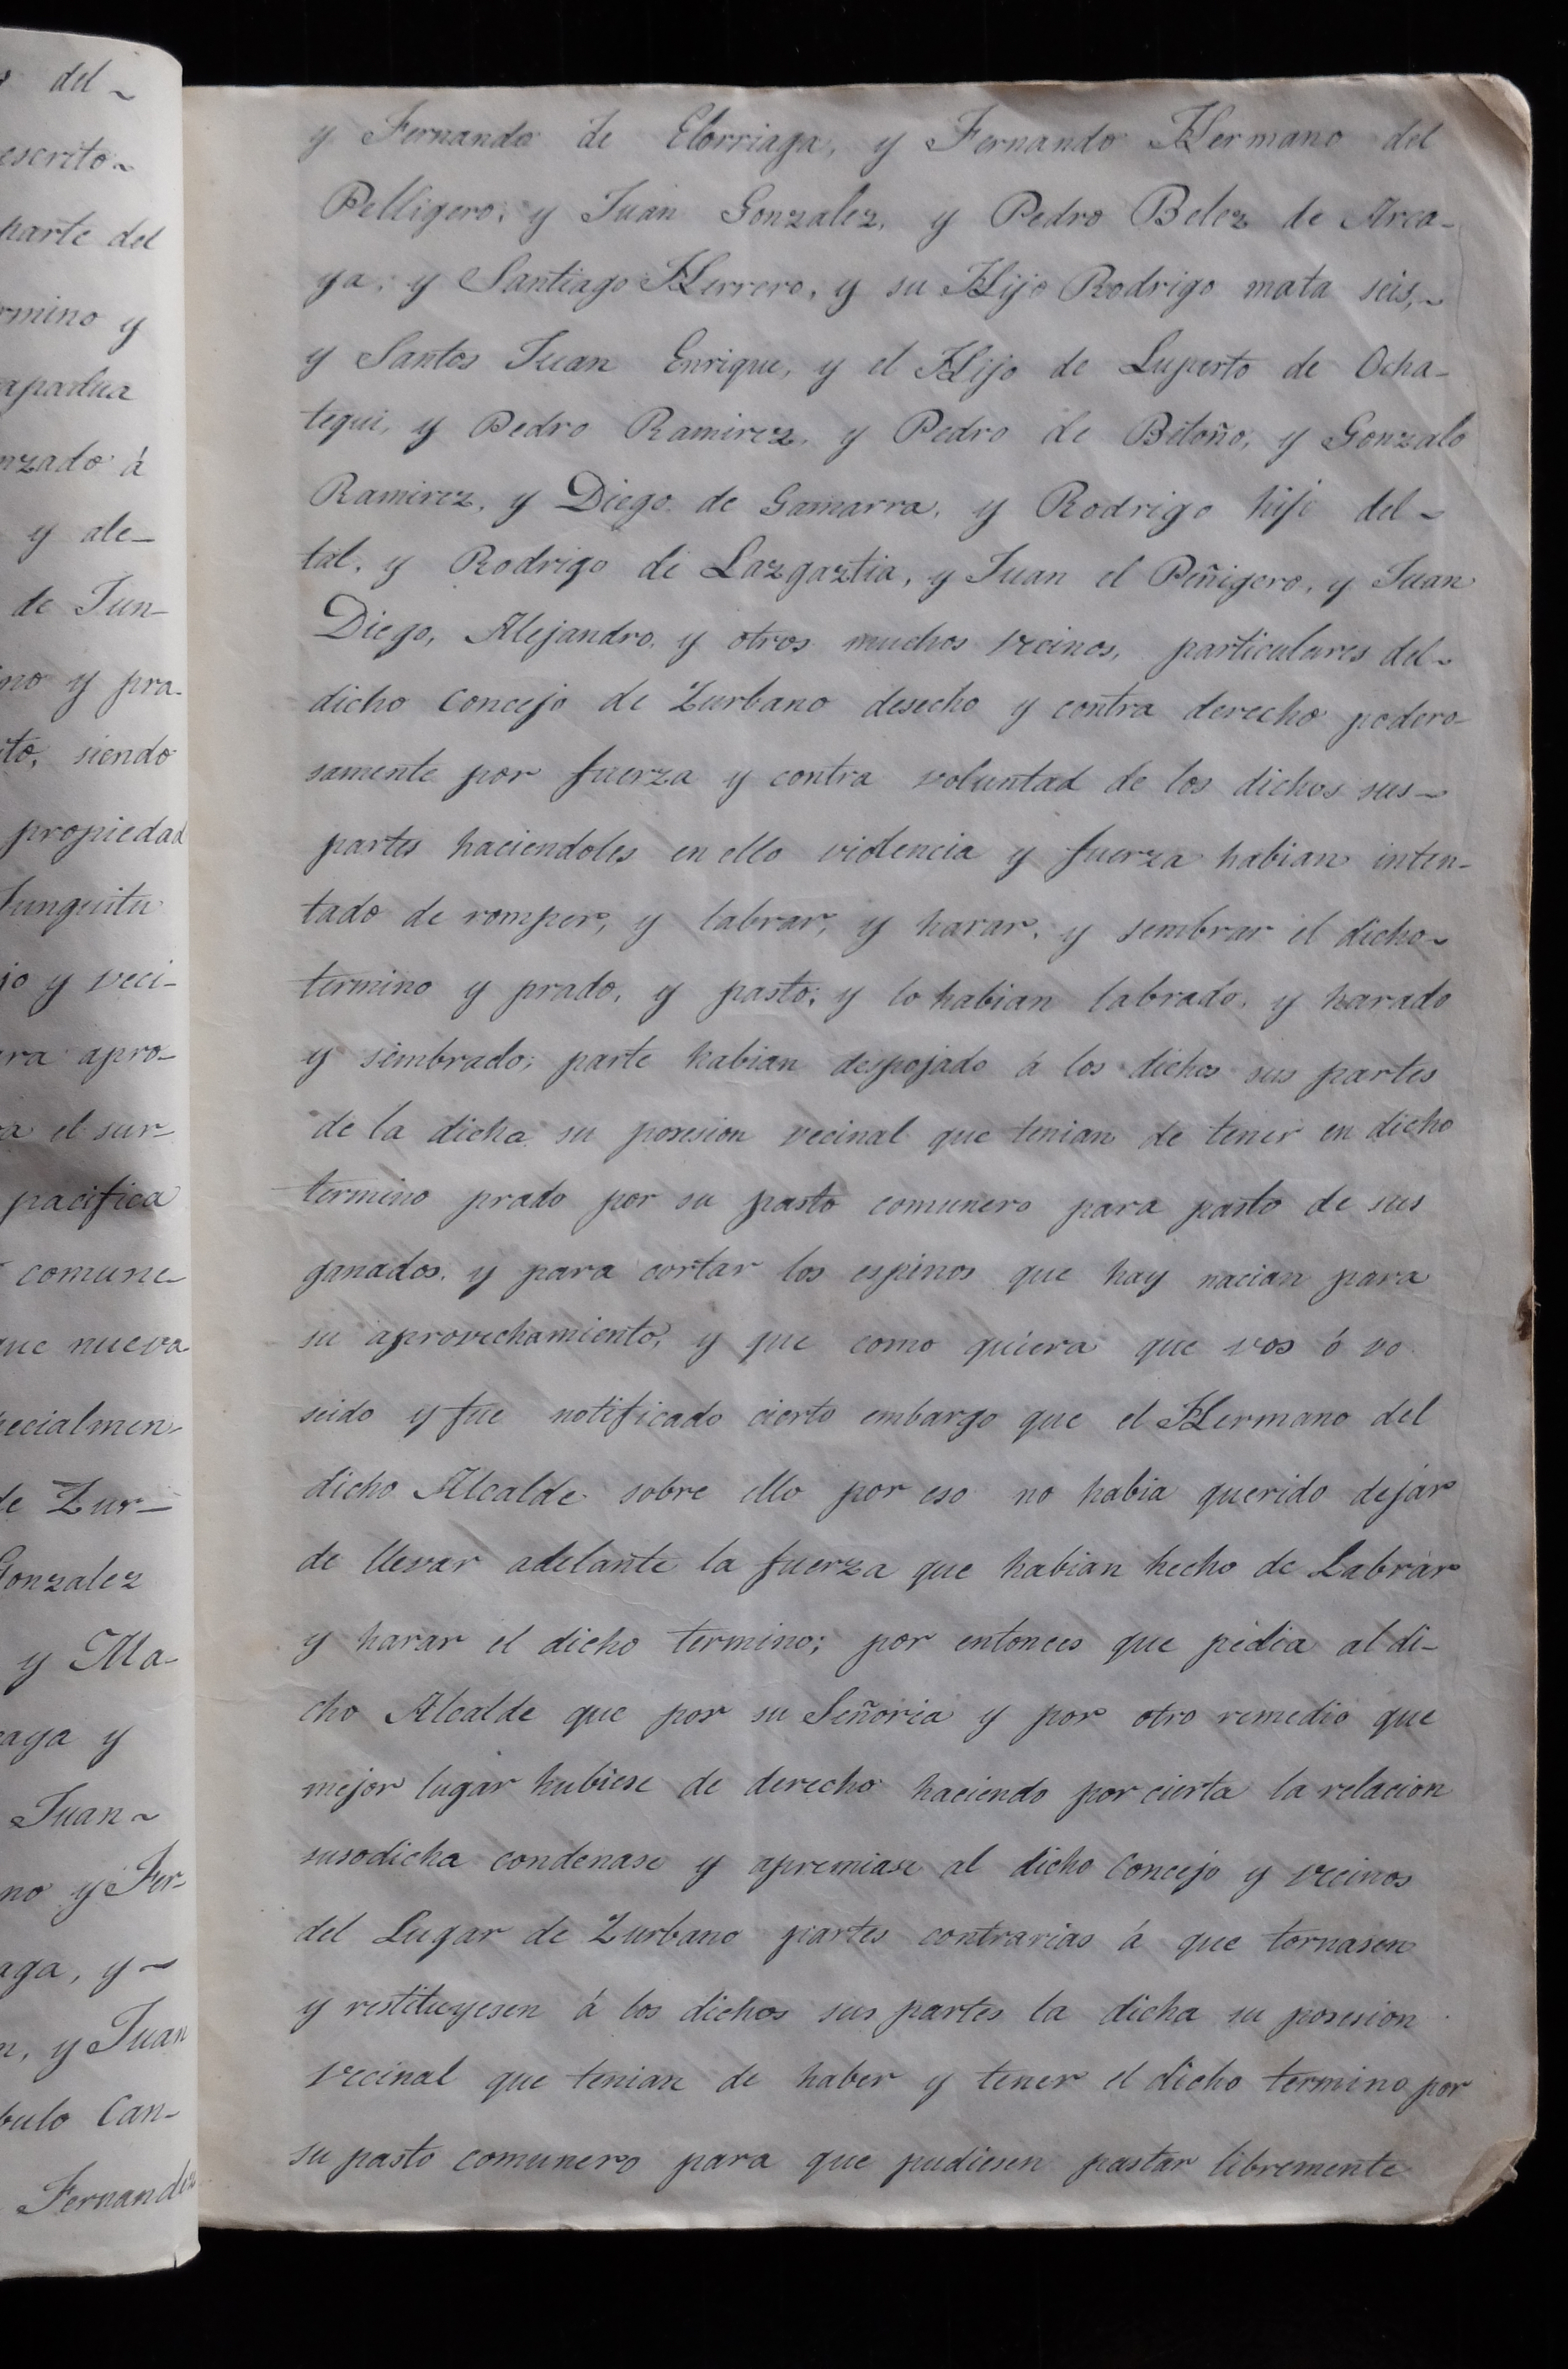 r del ~
escrito ~
parte del
rmino y
apadua
nzado á
y ale-
de Jun-
no y pra-
to, siendo
propiedad
Junguitu
jo y veci-
ra apro-
a el sur-
pacifica
comune-
que nueva
pecialmen-
de Zur-
Gonzalez
y Ma-
caya y
Juan ~
no y Fer-
aga, y ~
n, y Juan
bulo Can-
Fernandez
y Fernando de Elorriaga, y Fernando Hermano del
Pelligero, y Juan Gonzalez, y Pedro Belez de Arca-
ya, y Santiago Herrero, y su Hijo Rodrigo mata seis, ~
y Santos Juan Enrique, y el Hijo de Luperto de Ocha-
tequi, y Pedro Ramirez, y Pedro de Bitoño, y Gonzalo
Ramirez, y Diego de Gamarra, y Rodrigo hijo del ~
tal, y Rodrigo de Lazgaztia, y Juan el Peñigero, y Juan
Diego, Alejandro, y otros muchos vecinos, particulares del ~
dicho Concejo de Zurbano desecho y contra derecho podero-
samente por fuerza y contra voluntad de los dichos sus ~
partes haciendoles en ello violencia y fuerza habian inten-
tado de romper, y labrar, y harar, y sembrar el dicho ~
termino y prado, y pasto; y lo habian labrado, y harado
y sembrado; parte habian despojado á los dichos sus partes
de la dicha su posesion vecinal que tenian de tener en dicho
termino prado por su pasto comunero para pasto de sus
ganados, y para cortar los espinos que hay nacian para
su aprovechamiento, y que como quiera que vos ó no
seido y fue notificado cierto embargo que el Hermano del
dicho Alcalde sobre ello por eso no habia querido dejar
de llevar adelante la fuerza que habian hecho de Labrar
y harar el dicho termino; por entonces que pidia al di-
cho Alcalde que por su Señoria y por otro remedio que
mejor lugar hubiese de derecho haciendo por cierta la relacion
susodicha condenase y apremiase al dicho Concejo y vecinos
del Lugar de Zurbano partes contrarias á que tornasen
y restituyesen á los dichos sus partes la dicha su posesion
vecinal que tenian de haber y tener el dicho termino por
su pasto comunero para que pudiesen pastar libremente